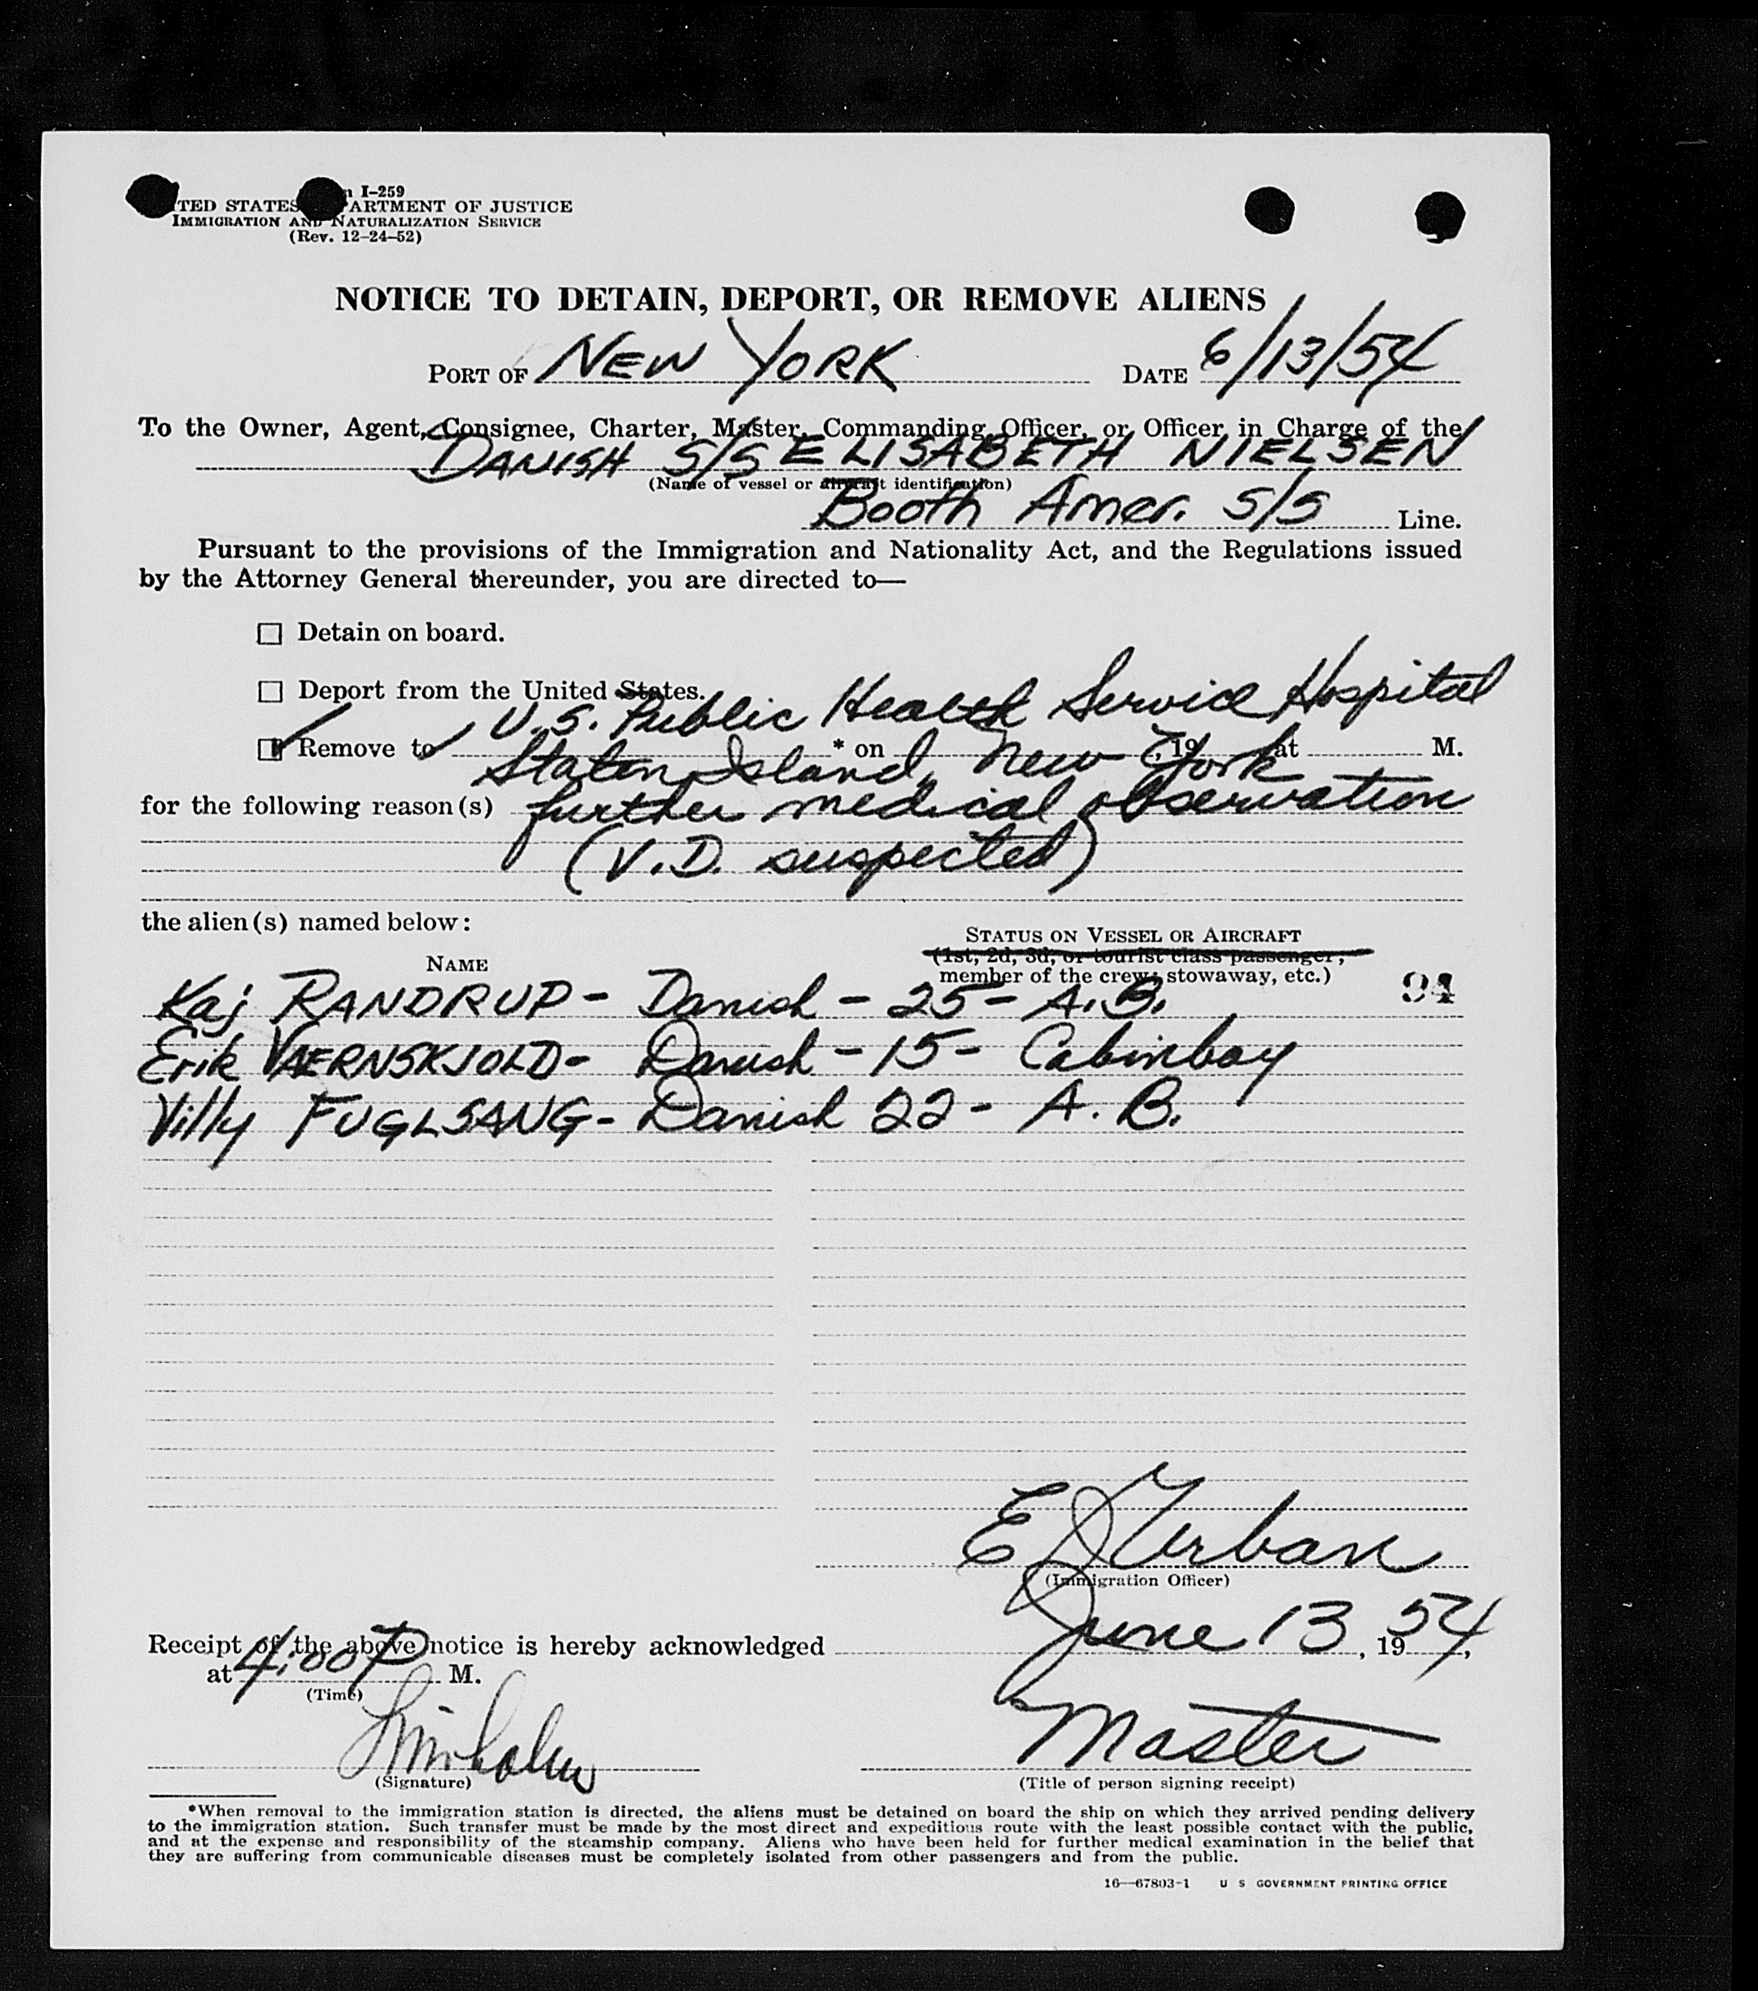 I-259
STATES ARTMENT OF JUSTICE
IMMIGRATION AND NATURALIZATION SERVICE
(Rev. 12-24-52)
NOTICE TO DETAIN, DEPORT, OR REMOVE ALIENS
PORT OF NEW YORK DATE 6/13/54
To the Owner, Agent, Consignee, Charter, Master, Commanding Officer, or Officer in Charge of the
DANISH S/S ELISABETH NIELSEN
(Name of vessel or aircraft identification)
Booth Amer. S/S Line.
Pursuant to the provisions of the Immigration and Nationality Act, and the Regulations issued
by the Attorney General thereunder, you are directed to—
Detain on board.
Deport from the United States.
U.S. Public Health Service Hospital
Remove to * on , 19 at M.
Staten Island, New York
for the following reason(s) further medical observation
(V.D. suspected)
the alien(s) named below:
STATUS ON VESSEL OR AIRCRAFT
NAME (1st, 2d, 3d, or tourist class passenger,
member of the crew, stowaway, etc.) 94
Kaj RANDRUP - Danish - 25 - A.B.
Erik VAERNSKJOLD - Danish - 15 - Cabinboy
Villy FUGLSANG - Danish 22 - A. B.
E D Urban
(Immigration Officer)
Receipt of the above notice is hereby acknowledged June 13, 1954,
at 4:00 P M.
(Time)
Master
(Signature) (Title of person signing receipt)
*When removal to the immigration station is directed, the aliens must be detained on board the ship on which they arrived pending delivery
to the immigration station. Such transfer must be made by the most direct and expeditious route with the least possible contact with the public,
and at the expense and responsibility of the steamship company. Aliens who have been held for further medical examination in the belief that
they are suffering from communicable diseases must be completely isolated from other passengers and from the public.
16—67803-1 U S GOVERNMENT PRINTING OFFICE